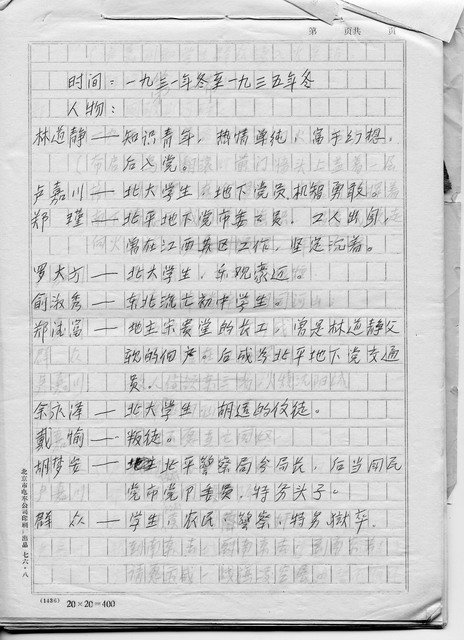 第 页共 页
时间：一九三一年冬至一九三五年冬
人物：
林道静——知识青年，热情单纯，富于幻想，
后入党。
卢嘉川——北大学生 地下党员，机智勇敢。
郑 瑾——北平地下党市委委员，工人出身，
曾在江西苏区工作，坚定沉着。
罗大方——北大学生，乐观豪迈。
俞淑秀——东北流亡初中学生。
郑德富——地主宋贵堂的长工，曾是林道静父
亲的佃户。后成为北平地下党交通
员。
余永泽——北大学生 胡适的信徒。
戴 愉——叛徒。
胡梦安——北平警察局分局长，后当国民
党市党部委员，特务头子。
群 众——学生 农民 警察，特务 狱卒。
北京市电车公司印刷厂出品 七六·八
(1436) 20×20=400